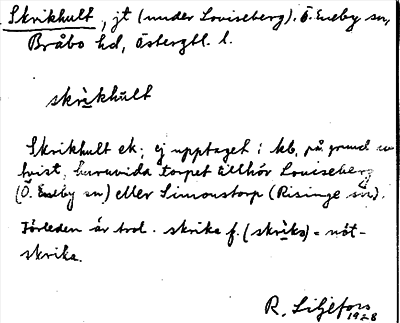 Skrikhult, jt (under Louiseberg). Ö. Eneby sn,
Bråbo hd, Östergötl. l.
skrìkhùlt
Skrikhult ek; ej upptaget i kb. på grund av
tvist, huruvida torpet tillhör Louiseberg
(Ö. Eneby sn) eller Simonstorp (Risinge sn).
Förleden är trol. skrika f. (skrìka) = nöt-
skrika.
R. Liljefors
1928